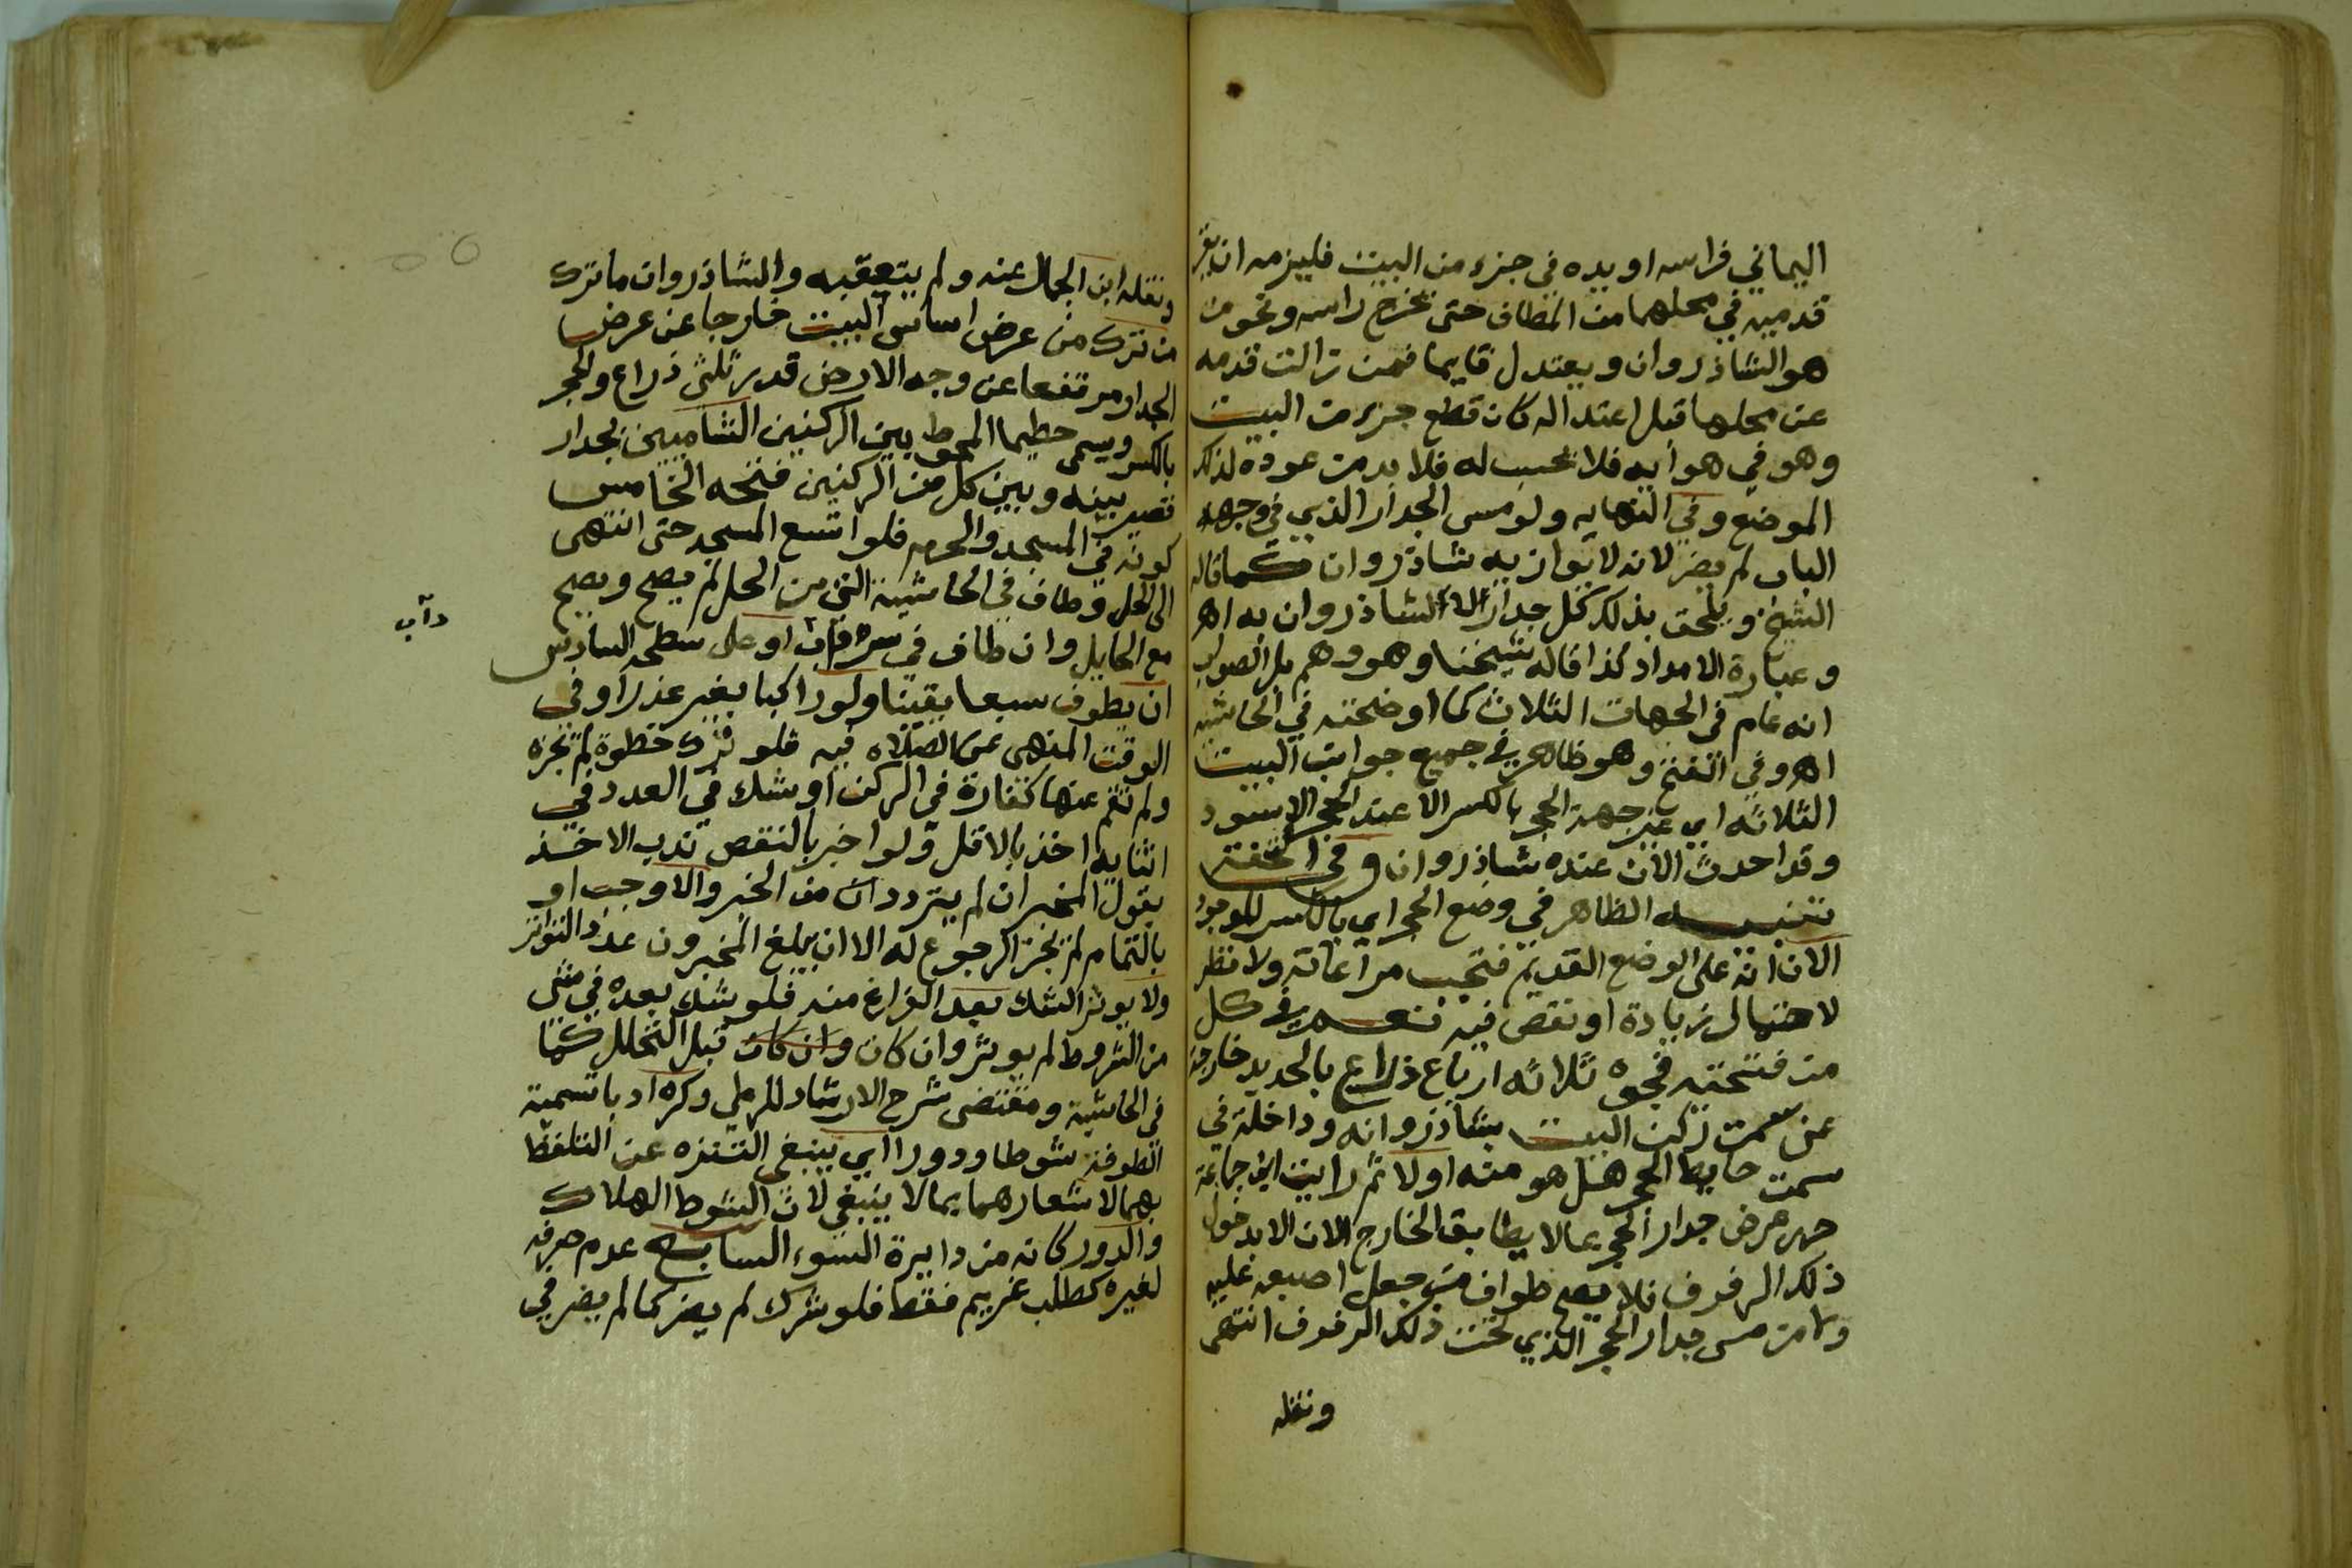 اليماني فراسه او يده في جزء من البيت فليزمه ان يقر
قدميه في محلهما من المطاف حتى تخرج راسه ونحو من
هو الشاذروان ويعتدل قايما فمن زالت قدمه
عن محلها قبل اعتداله كان قطع جزء من البيت
وهو في هوايه فلا تحسب له فلا بد من عوده لذلك
الموضع وفي النهايه ولو مس الجدار الذي في وجهه
الباب لم يضر لانه لا يوازيه شاذروان كما قاله
الشيخ ويلحق بذلك كل جدار لا شاذروان به اهـ
وعبارة الامداد كذا قاله شيخنا وهو وهم بل الصواب
انه عام في الجهات الثلاث كما اوضحته في الحاشيه
اهـ وفي الفتح وهو ظاهر في جميع جوانب البيت
الثلاثه اي غير جهة الحجر بالكسر الا عند الحجر الاسود
وقد احدث الان عنده شاذروان وفي التحفة
تنبيه الظاهر في وضع الحجر اي بالكسر الموجود
الان انه على الوضع القديم فتجب مراعاته ولا نظر
لاحتمال زيادة او نقص فيه نعم في كل
من فتحتيه فجوه ثلاثه ارباع ذراع بالحديد خارجة
عن سمت ركن البيت بشاذروانه وداخلة في
سمت حايط الحجر هل هو منه اولا ثم رايت ابن جماعة
حرر عرض جدار الحجر بما لا يطابق الخارج الان الا بدخول
ذلك الرفرف فلا يصح طواف من جعل اصبعه عليه
ولا من مس جدار الحجر الذي تحت ذلك الرفرف انتهى
ونقله
ونقله ابن الجمال عنه ولم يتعقبه والشاذروان ما ترك
من ترك من عرض اساس البيت خارجا عن عرض
الجدار مرتفعا عن وجه الارض قدر ثلثي ذراع والحجر
بالكسر ويسمى حطيما المحوط بين الركنين الشاميين بجدار
قصير بينه وبين كل من الركنين فتحه الخامس
كونه في المسجد والحرم فلو اتسع المسجد حتى انتهى
الى الحل وطاف في الحاشية التي من الحل لم يصح ويصح
مع الحايل وان طاف في او على سطحه السادس
داب
ان يطوف سبعا يقينا ولو راكبا بغير عذر او في
الوقت المنهى عن الصلاه فيه فلو ترك خطوة لم تجزه
ولم تقم عنها كفارة في الركن او شك في العدد في
اثنايه اخذ بالاقل ولو اخبر بالنقص ندب الاخذ
بقول المخبر ان لم يتردد ان من الخبر والا وجب او
بالتمام لم يجز الرجوع له الا ان يبلغ المخبرون عدد التواتر
ولا يوثر الشك بعد الفراغ منه فلو شك بعده في شي
من الشروط لم يوثر وان كان وان كان قبل التحلل كما
في الحاشية ومقتضى شرح الارشاد للرملي وكره ادبا تسمية
الطوفة شوطا ودورا اي ينبغي التنزه عن التلفظ
بهما لاشعارهما بما لا ينبغي لان الشوط الهلاك
والدور كانه من دايرة السوء السابع عدم صرفه
لغيره كطلب غريم فقط فلو شرك لم يضر كما لم يضر في